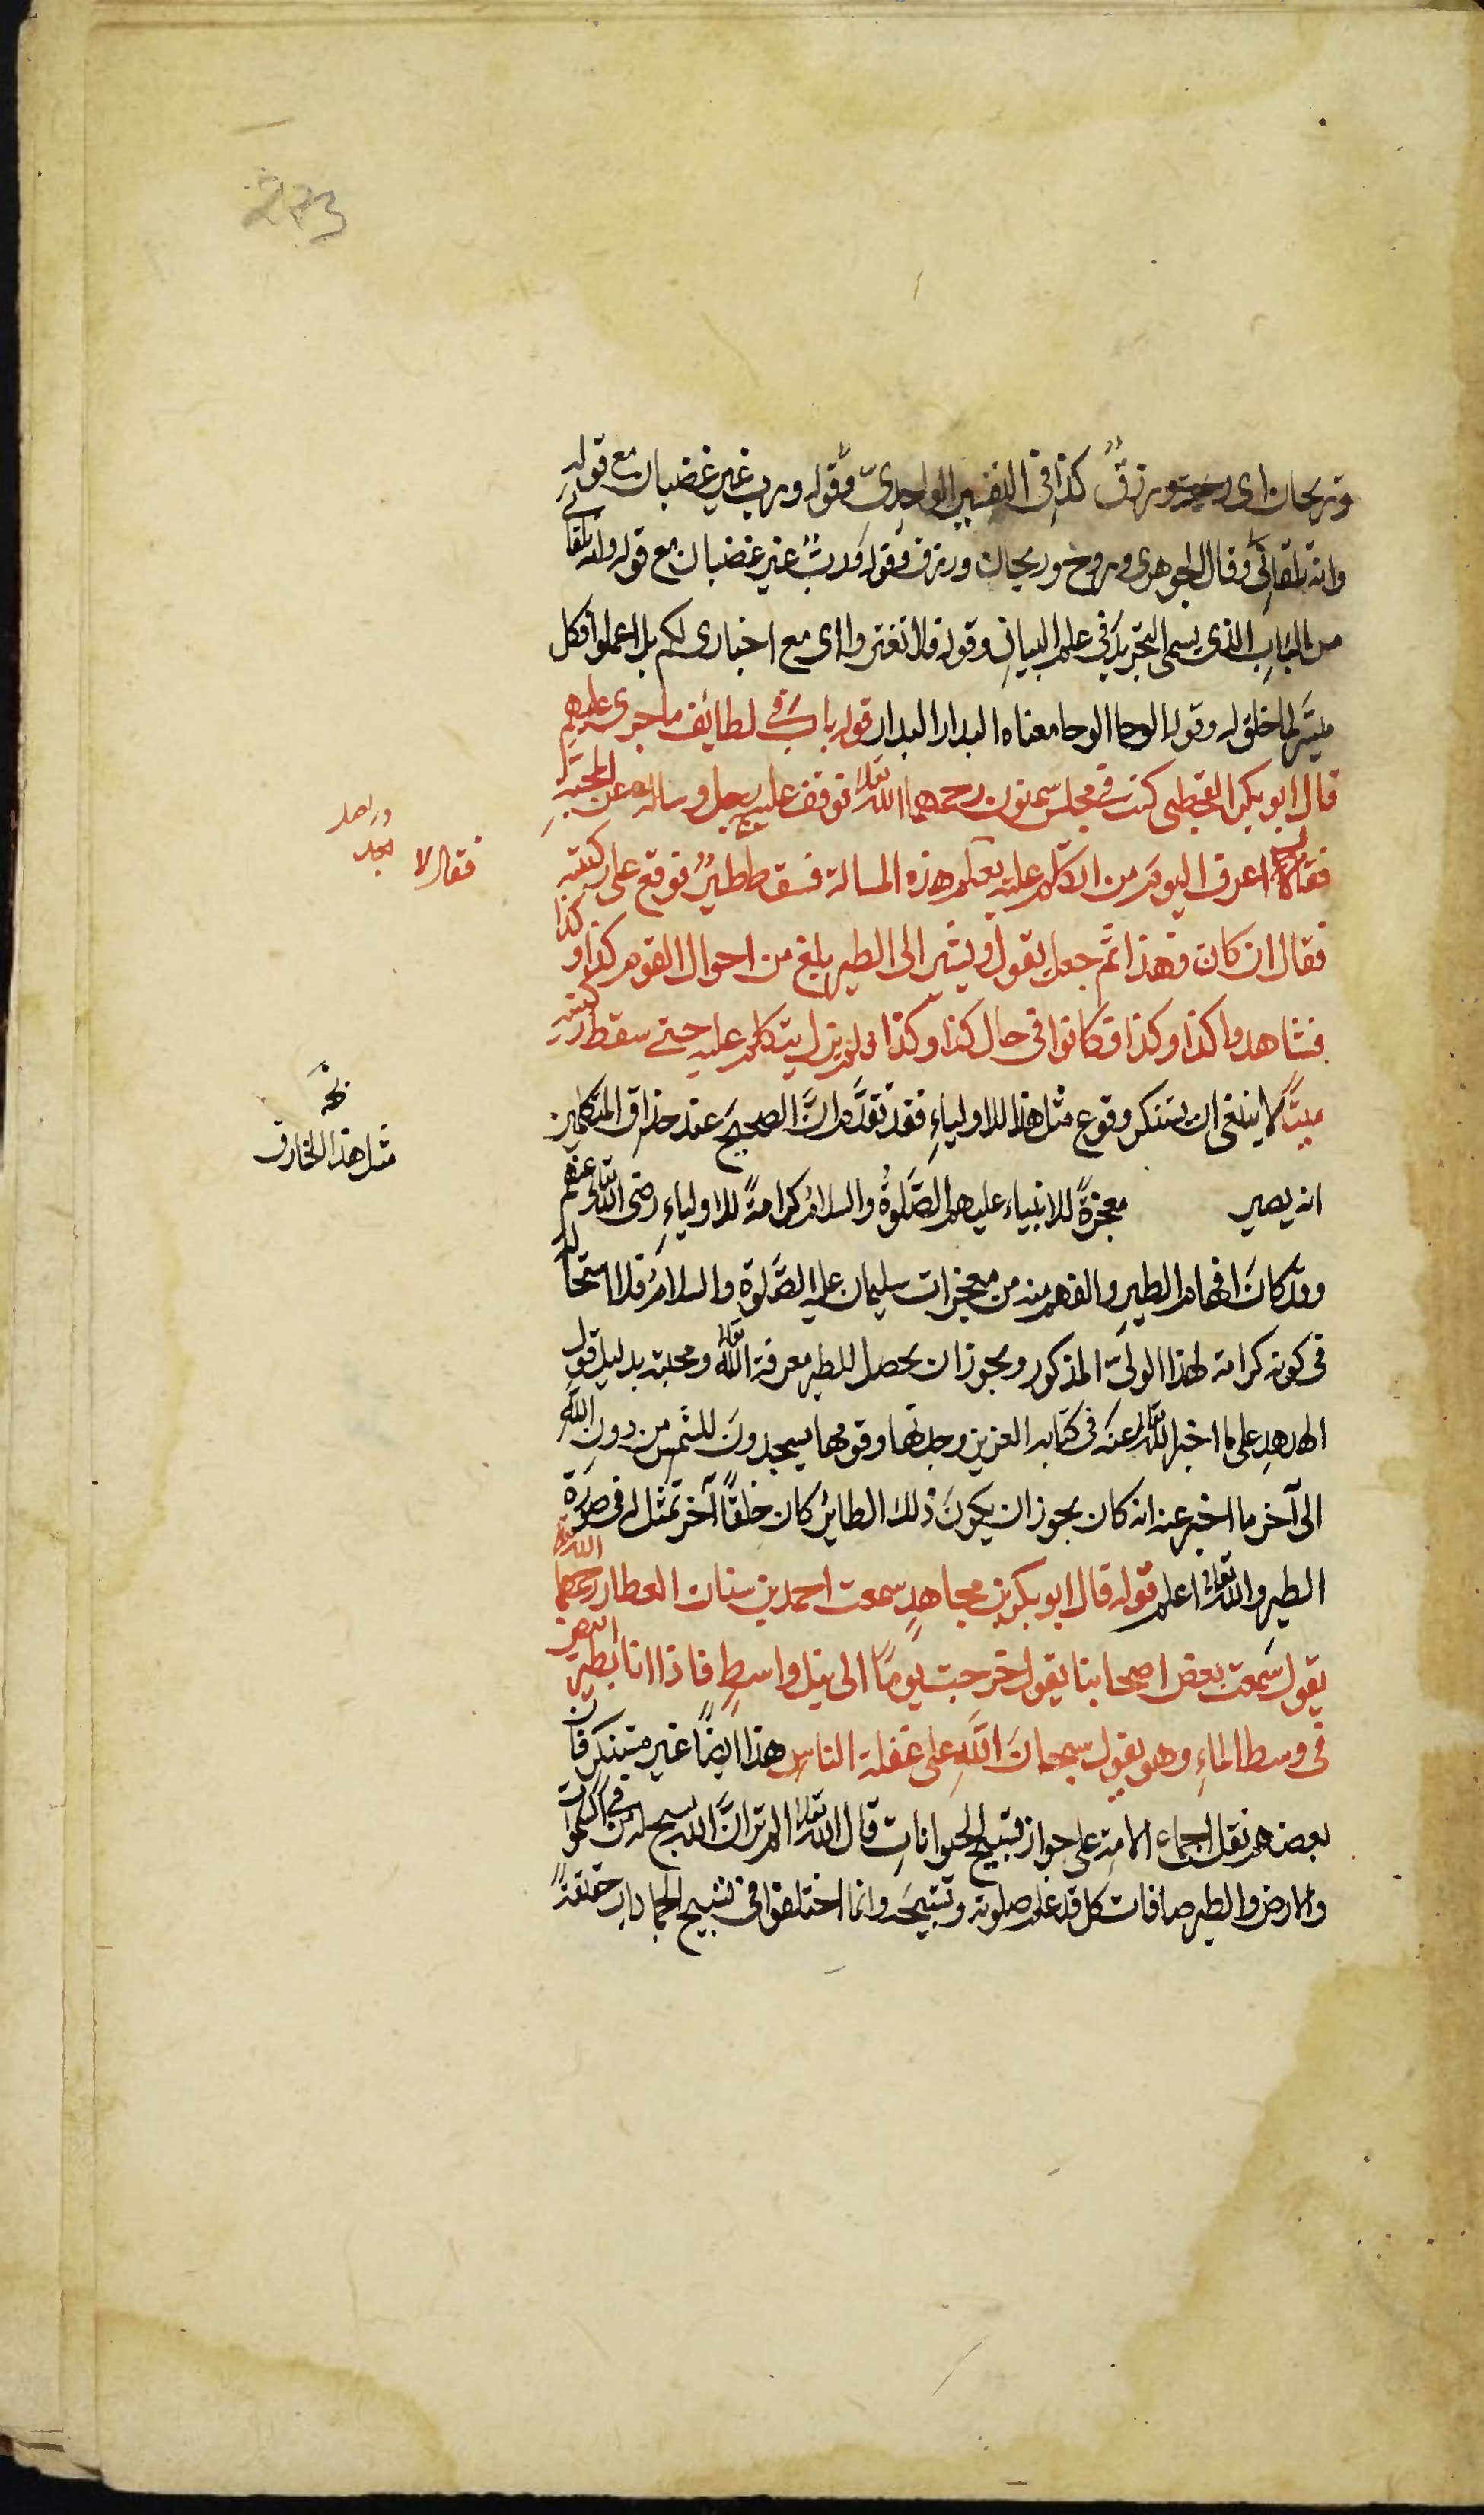 273
وريحان اى رحمة ورزقٌ كذا فى التفسير الواحدىّ وقوله ورب غير غضبان مع قوله
وانه تلقانى وقال الجوهرى وروح وريحان ورزق وقوله وربٌّ غير غضبان مع قوله وانه تلقانى
من البابِ الذى يسمى التجريد فى علم البيانِ وقوله فلا تغتروا اى مع اخبارى لكم بل اعملوا فكل
ميسّر لما خلق له وقوله الوحا الوحا معناه البدار البدار قوله باب فى لطايف ما جرى عليهم
قال ابو بكر القحطبى كنت فى مجلس سمنون رحمهما الله تعالى فوقف عليه رجل وساله عن المحبة
فقال لا اعرف اليوم من اتكلم عليه يعلم هذه المسالة فسقط طيرٌ فوقع على ركبته
فقال ان كان فهذا ثم جعل يقول ويشير الى الطير بلغ من احوال القوم كذا وكذا
فشاهدوا كذا وكذا فكانوا فى حال كذا وكذا فلم يزل يتكلم عليه حتى سقط ركبته
ميتًا لا ينبغى ان يستنكر وقوع مثل هذا للاولياءِ فقد تقدّم انّ الصحيحَ عند حذاق المتكلمين
انه يصير معجزةً للانبياء عليهم الصّلوةُ والسلامُ كرامةً للاولياءِ رضى الله تعالى عنهم
وقد كانَ افهام الطيرِ والفهم منه من معجزات سليمان عليه الصّلوة والسلامُ فلا استحالة
فى كونه كرامة لهذا الولىّ المذكور ويجوز ان يحصل للطير معرفة الله تعالى ومحبته بدليل قول
الهدهدِ على ما اخبر الله تعالى عنه فى كتابه العزيز وجدتها وقومها يسجدونَ للشمس من دونِ اللهِ
الى آخر ما اخبر عنه انه كان يجوز ان يكونَ ذلك الطائرُ كان خلقًا آخر تمثل له فى صورة
الطير والله تعالى اعلم قوله قال ابو بكر بن مجاهدٍ سمعت احمد بن سنان العطار رحمهما الله تعالى
يقول سمعت بعض اصحابنا يقول خرجت يومًا الى نيل واسطٍ فاذا انا بطير ابيض
فى وسط الماءِ وهو يقول سبحانَ اللهِ على غفلة الناس هذا ايضًا غير مستنكر فان
بعضهم نقل اجماع الامةِ على جواز تسبيح الحيواناتِ قال الله تعالى الم تر انَّ الله يسبح له من فى السموات
والارض والطير صافات كل قد علم صلوته وتسبيحه وانما اختلفوا فى تسبيح الجماداتِ حقيقةً
فقال لا
مثل هذا الخارق